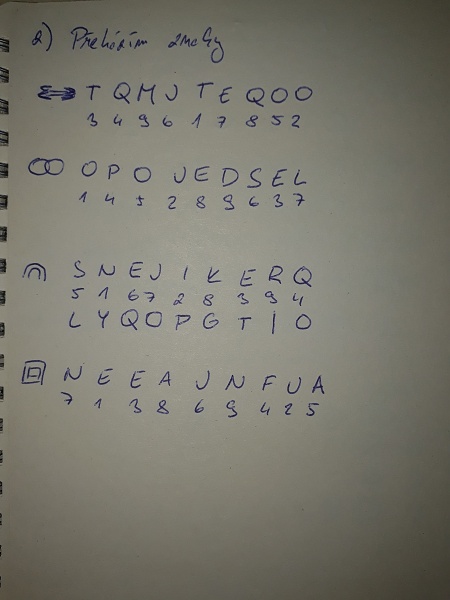 2) Přeházím znaky
T Q M J T E Q O O
3 4 9 6 1 7 8 5 2
O P O J E D S E L
1 4 5 2 8 9 6 3 7
S N E J I K E R Q
5 1 6 7 2 8 3 9 4
L Y Q O P G T I O
N E E A J N F U A
7 1 3 8 6 9 4 2 5